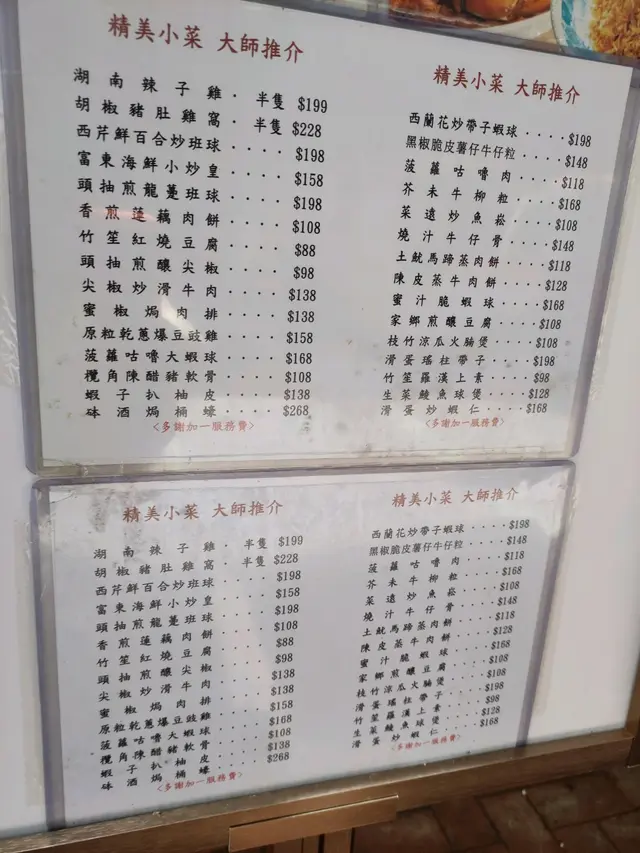 精美小菜 大師推介
湖南辣子雞. 半隻 $199
胡椒豬肚雞窩. 半隻 $228
西芹鮮百合炒班球.... $198
富東海鮮小炒皇.... $158
頭抽煎龍躉班球.... $198
香煎蓮藕肉餅.... $108
竹笙紅燒豆腐.... $88
頭抽煎釀尖椒.... $98
尖椒炒滑牛肉.... $138
蜜椒焗肉排.... $138
原粒乾蔥爆豆豉雞.... $158
菠蘿咕嚕大蝦球.... $168
欖角陳醋豬軟骨.... $108
蝦子扒柚皮.... $138
砵酒焗桶蠔.... $268
<多謝加一服務費>
精美小菜 大師推介
西蘭花炒帶子蝦球....$198
黑椒脆皮薯仔牛仔粒....$148
菠蘿咕嚕肉....$118
芥末牛柳粒....$168
菜遠炒魚崧....$108
燒汁牛仔骨....$148
土魷馬蹄蒸肉餅....$118
陳皮蒸牛肉餅....$128
蜜汁脆蝦球....$168
家鄉煎釀豆腐....$108
枝竹涼瓜火腩煲....$108
滑蛋瑤柱帶子....$198
竹笙羅漢上素....$98
生菜鯪魚球煲....$128
滑蛋炒蝦仁....$168
<多謝加一服務費>
精美小菜 大師推介
湖南辣子雞. 半隻 $199
胡椒豬肚雞窩. 半隻 $228
西芹鮮百合炒班球.... $198
富東海鮮小炒皇.... $158
頭抽煎龍躉班球.... $198
香煎蓮藕肉餅.... $108
竹笙紅燒豆腐.... $88
頭抽煎釀尖椒.... $98
尖椒炒滑牛肉.... $138
蜜椒焗肉排.... $138
原粒乾蔥爆豆豉雞.... $158
菠蘿咕嚕大蝦球.... $168
欖角陳醋豬軟骨.... $108
蝦子扒柚皮.... $138
砵酒焗桶蠔.... $268
<多謝加一服務費>
精美小菜 大師推介
西蘭花炒帶子蝦球....$198
黑椒脆皮薯仔牛仔粒....$148
菠蘿咕嚕肉....$118
芥末牛柳粒....$168
菜遠炒魚崧....$108
燒汁牛仔骨....$148
土魷馬蹄蒸肉餅....$118
陳皮蒸牛肉餅....$128
蜜汁脆蝦球....$168
家鄉煎釀豆腐....$108
枝竹涼瓜火腩煲....$108
滑蛋瑤柱帶子....$198
竹笙羅漢上素....$98
生菜鯪魚球煲....$128
滑蛋炒蝦仁....$168
<多謝加一服務費>